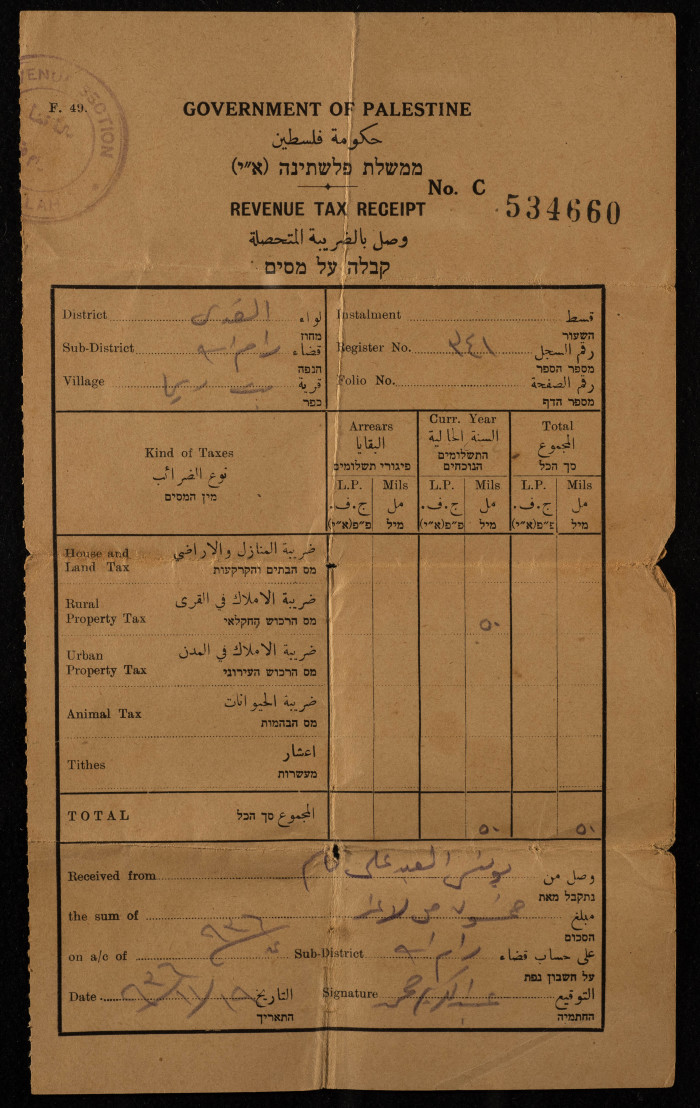 F. 49.
GOVERNMENT OF PALESTINE
حكومة فلسطين
ממשלת פלשתינה (א״י)
No. C 534660
REVENUE TAX RECEIPT
وصل بالضريبة المتحصلة
קבלה על מסים
District القدس لواء
מחוז
Sub-District رام الله قضاء
הנפה
Village قرية
כפר
Instalment قسط
השעור
Register No. ٣٤١ رقم السجل
מספר הספר
Folio No. رقم الصفحة
מספר הדף
Kind of Taxes
نوع الضرائب
מין המסים
Arrears
البقايا
פיגורי תשלומים
Curr. Year
السنة الحالية
התשלומים
הנוכחים
Total
المجموع
סך הכל
L.P. Mils L.P. Mils L.P. Mils
ج.ف. مل ج.ف. مل ج.ف. مل
פ״פ(א״י) מיל פ״פ(א״י) מיל פ״פ(א״י) מיל
House and ضريبة المنازل والاراضي
Land Tax מס הבתים והקרקעות
Rural ضريبة الاملاك في القرى
Property Tax מס הרכוש החקלאי ٥٠
Urban ضريبة الاملاك في المدن
Property Tax מס הרכוש העירוני
ضريبة الحيوانات
Animal Tax מס הבהמות
اعشار
Tithes
מעשרות
TOTAL المجموع סך הכל ٥٠ ٥٠
Received from وصل من
נתקבל מאת
the sum of مبلغ
הסכום
on a/c of ٩٣٦ Sub-District رام الله على حساب قضاء
על חשבון נפת
Date التاريخ Signature التوقيع
התאריך החתמיה